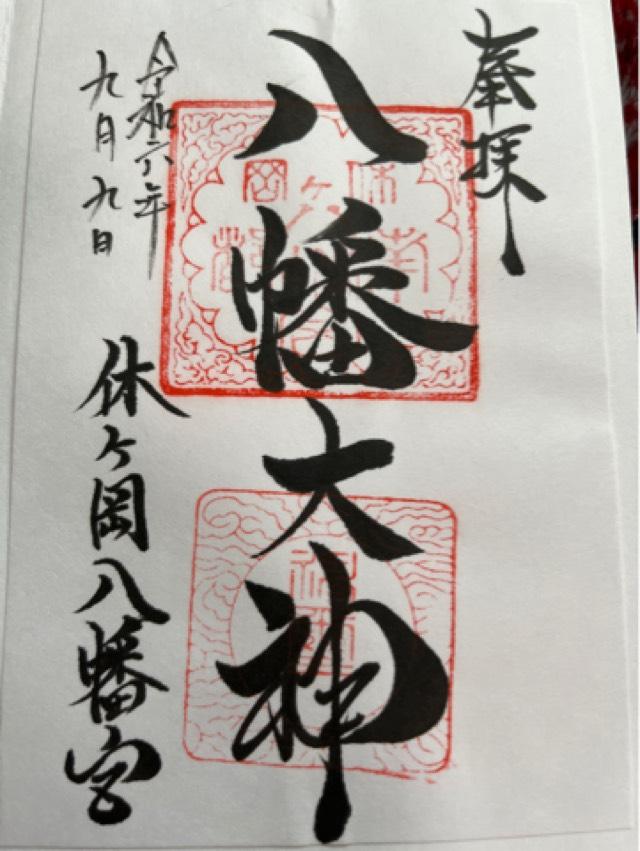 奉拝
八幡大神
令和六年
九月九日
休ヶ岡八幡宮